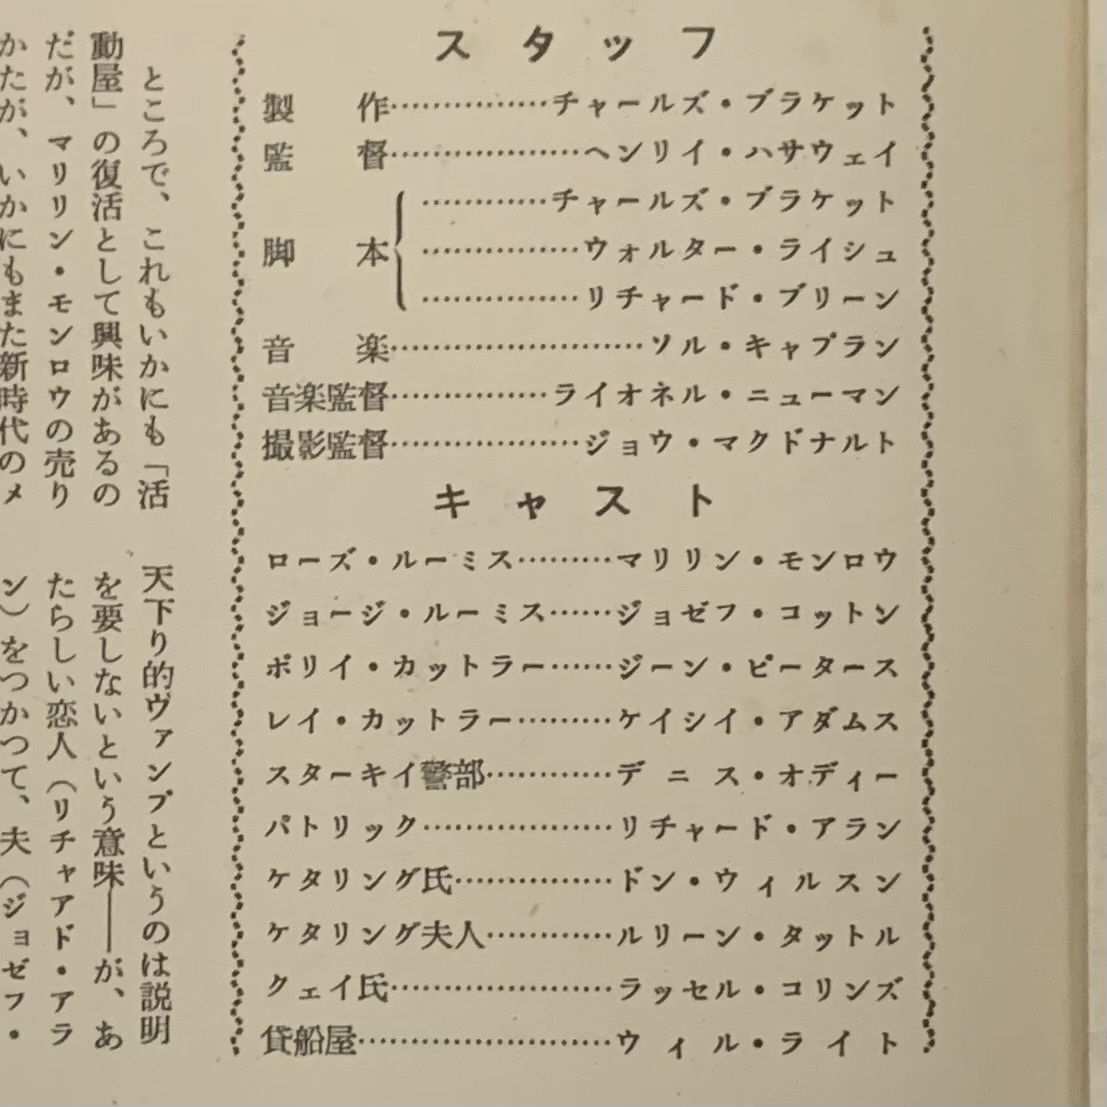 スタッフ
製作……………チャールズ・ブラケット
監督………………ヘンリイ・ハサウェイ
脚本{…………チャールズ・ブラケット
……………ウォルター・ライシュ
……………リチャード・ブリーン
音楽……………………ソル・キャプラン
音楽監督……………ライオネル・ニューマン
撮影監督………………ジョウ・マクドナルト
キャスト
ローズ・ルーミス………マリリン・モンロウ
ジョージ・ルーミス……ジョゼフ・コットン
ポリイ・カットラー……ジーン・ピータース
レイ・カットラー………ケイシイ・アダムス
スターキイ警部…………デニス・オディー
パトリック………………リチャード・アラン
ケタリング氏……………ドン・ウィルスン
ケタリング夫人…………ルリーン・タットル
クェイ氏…………………ラッセル・コリンズ
貸船屋……………………ウィル・ライト
ところで、これもいかにも「活
動屋」の復活として興味があるの
だが、マリリン・モンロウの売り
かたが、いかにもまた新時代のメ
天下り的ヴァンプというのは説明
を要しないという意味――が、あ
たらしい恋人（リチャアド・アラ
ン）をつかつて、夫（ジョゼフ・